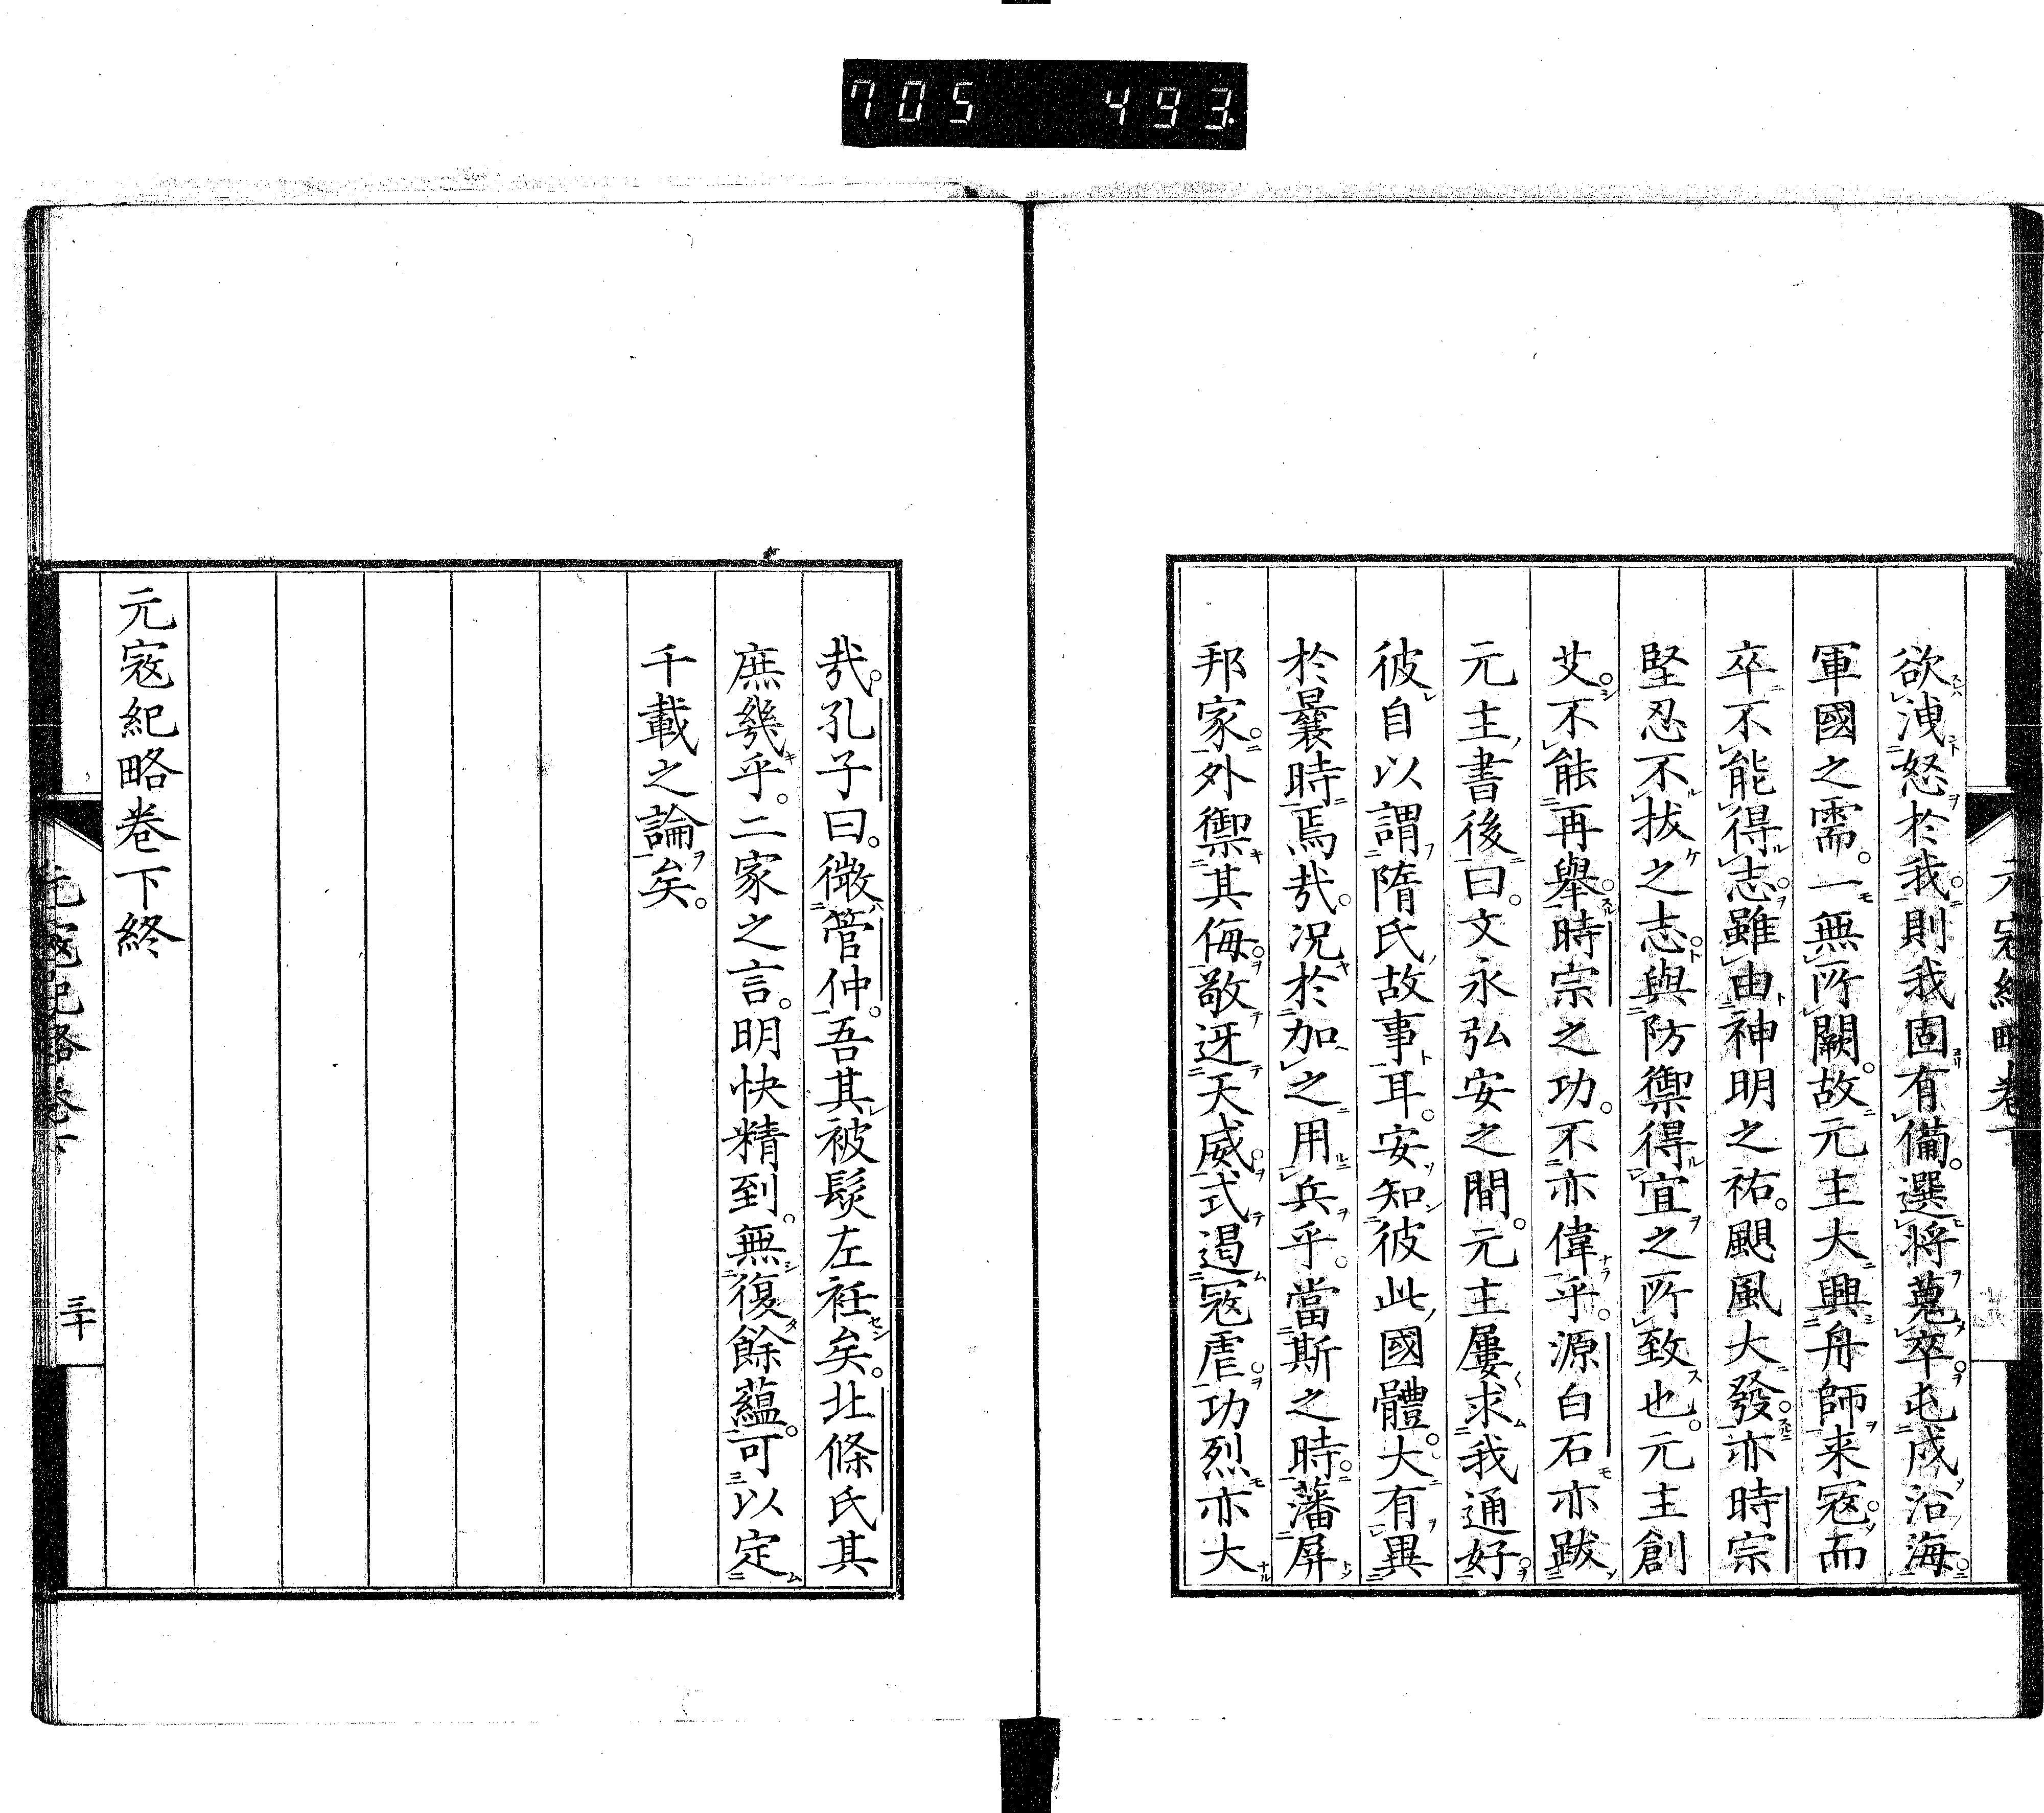 705 493
欲洩怒於我。則我固有備。選將蒐卒。屯戍沿海。
軍國之需。一無所闕。故元主大興舟師来寇。而
卒不能得志。雖由神明之祐。颶風大發。亦時宗
堅忍不拔之志。與防禦得宜之所致也。元主創
艾。不能再舉。時宗之功。不亦偉乎。源白石亦跋
元主書後曰。文永弘安之間。元主屢求我通好。
彼自以謂隋氏故事耳。安知彼此國體。大有異
於曩時焉哉。况於加之用兵乎。當斯之時。藩屏
邦家。外禦其侮。敬迓天威。式遏寇虐。功烈亦大
哉。孔子曰。微管仲。吾其被髮左衽矣。北條氏其
庶幾乎。二家之言。明快精到。無復餘蘊。可以定
千載之論矣。
元寇紀略卷下終
元寇紀略卷下
三十